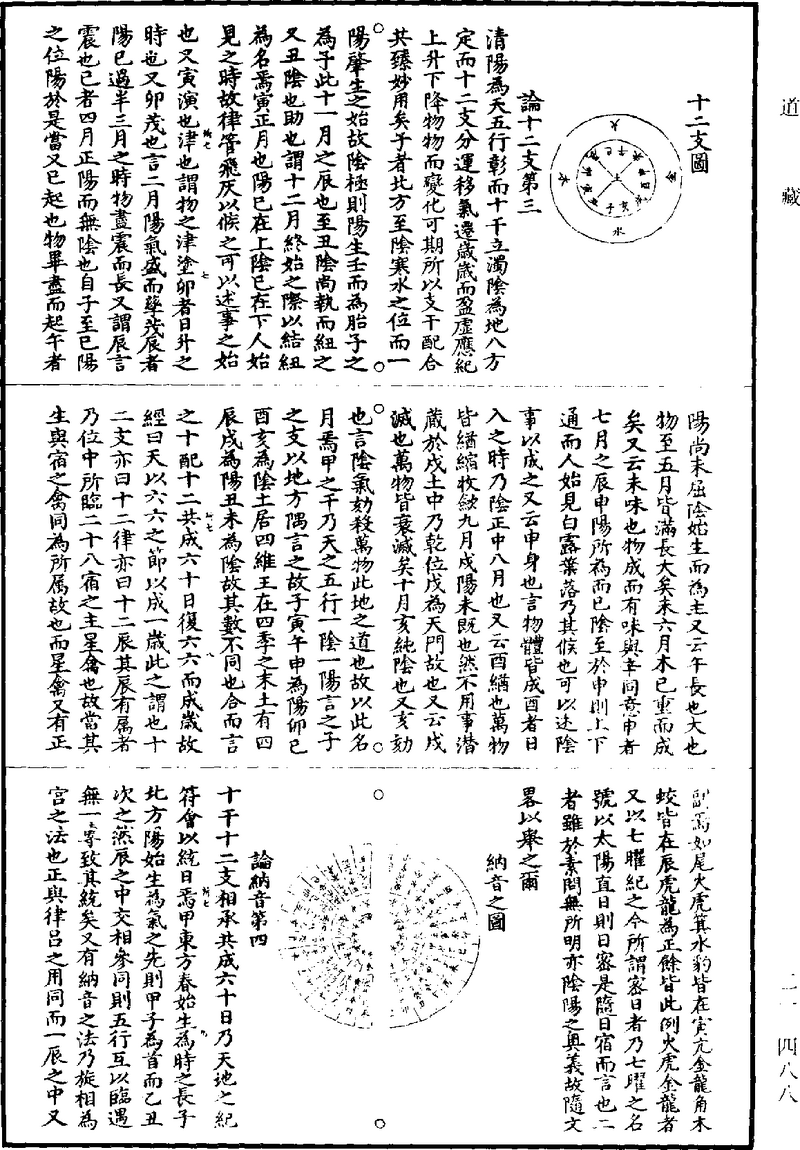 道藏
二一 四八八
十二支圖
火
金
木
水
土
論十二支第三
清陽為天五行彰而十干立濁陰為地八方
定而十二支分運移氣遷歲歲而盈虛應紀
上升下降物物而變化可期所以支干配合
共臻妙用矣子者北方至陰寒水之位而一
陽肇生之始故陰極則陽生壬而為胎子之
為子此十一月之辰也至丑陰尚執而紐之
又丑陰也助也謂十二月終始之際以結紐
為名焉寅正月也陽已在上陰已在下人始
見之時故律管飛灰以候之可以述事之始
也又寅演也津也謂物之津塗卯者日升之
時也又卯茂也言二月陽氣盛而孳茂辰者
陽已過半三月之時物盡震而長又謂辰言
震也巳者四月正陽而無陰也自子至巳陽
之位陽於是當又巳起也物畢盡而起午者
陽尚未屈陰始生而為主又云午長也大也
物至五月皆滿長大矣未六月木已重而成
矣又云未味也物成而有味與辛同意申者
七月之辰申陽所為而已陰至於申則上下
通而人始見白露葉落乃其候也可以述陰
事以成之又云申身也言物體皆成酉者日
入之時乃陰正中八月也又云酉緧也萬物
皆緧縮收斂九月戌陽未既也然不用事潛
藏於戊土中乃乾位戌為天門故也又云戌
滅也萬物皆衰滅矣十月亥純陰也又亥劾
也言陰氣劾殺萬物此地之道也故以此名
月焉甲之干乃天之五行一陰一陽言之子
之支以地方隅言之故子寅午申為陽卯巳
酉亥為陰土居四維王在四季之末土有四
辰戌為陽丑未為陰故其數不同也合而言
之十配十二共成六十日復六六而成歲故
經曰天以六六之節以成一歲此之謂也十
二支亦曰十二律亦曰十二辰其辰有属者
乃位中所臨二十八宿之主星禽也故當其
生與宿之禽同為所属故也而星禽又有正
副焉如尾火虎箕水豹皆在寅亢金龍角木
蛟皆在辰虎龍為正餘皆此例火虎金龍者
又以七曜紀之今所謂密日者乃七曜之名
號以太陽直日則日密是隨日宿而言也二
者雖於素問無所明亦陰陽之奧義故隨文
畧以舉之爾
納音之圖
論納音第四
十干十二支相承共成六十日乃天地之紀
符會以統日焉甲東方春始生為時之長子
北方陽始生為氣之先則甲子為首而乙丑
次之然辰之中交相參同則五行互以臨遇
無一專致其統矣又有納音之法乃旋相為
宮之法也正與律呂之用同而一辰之中又